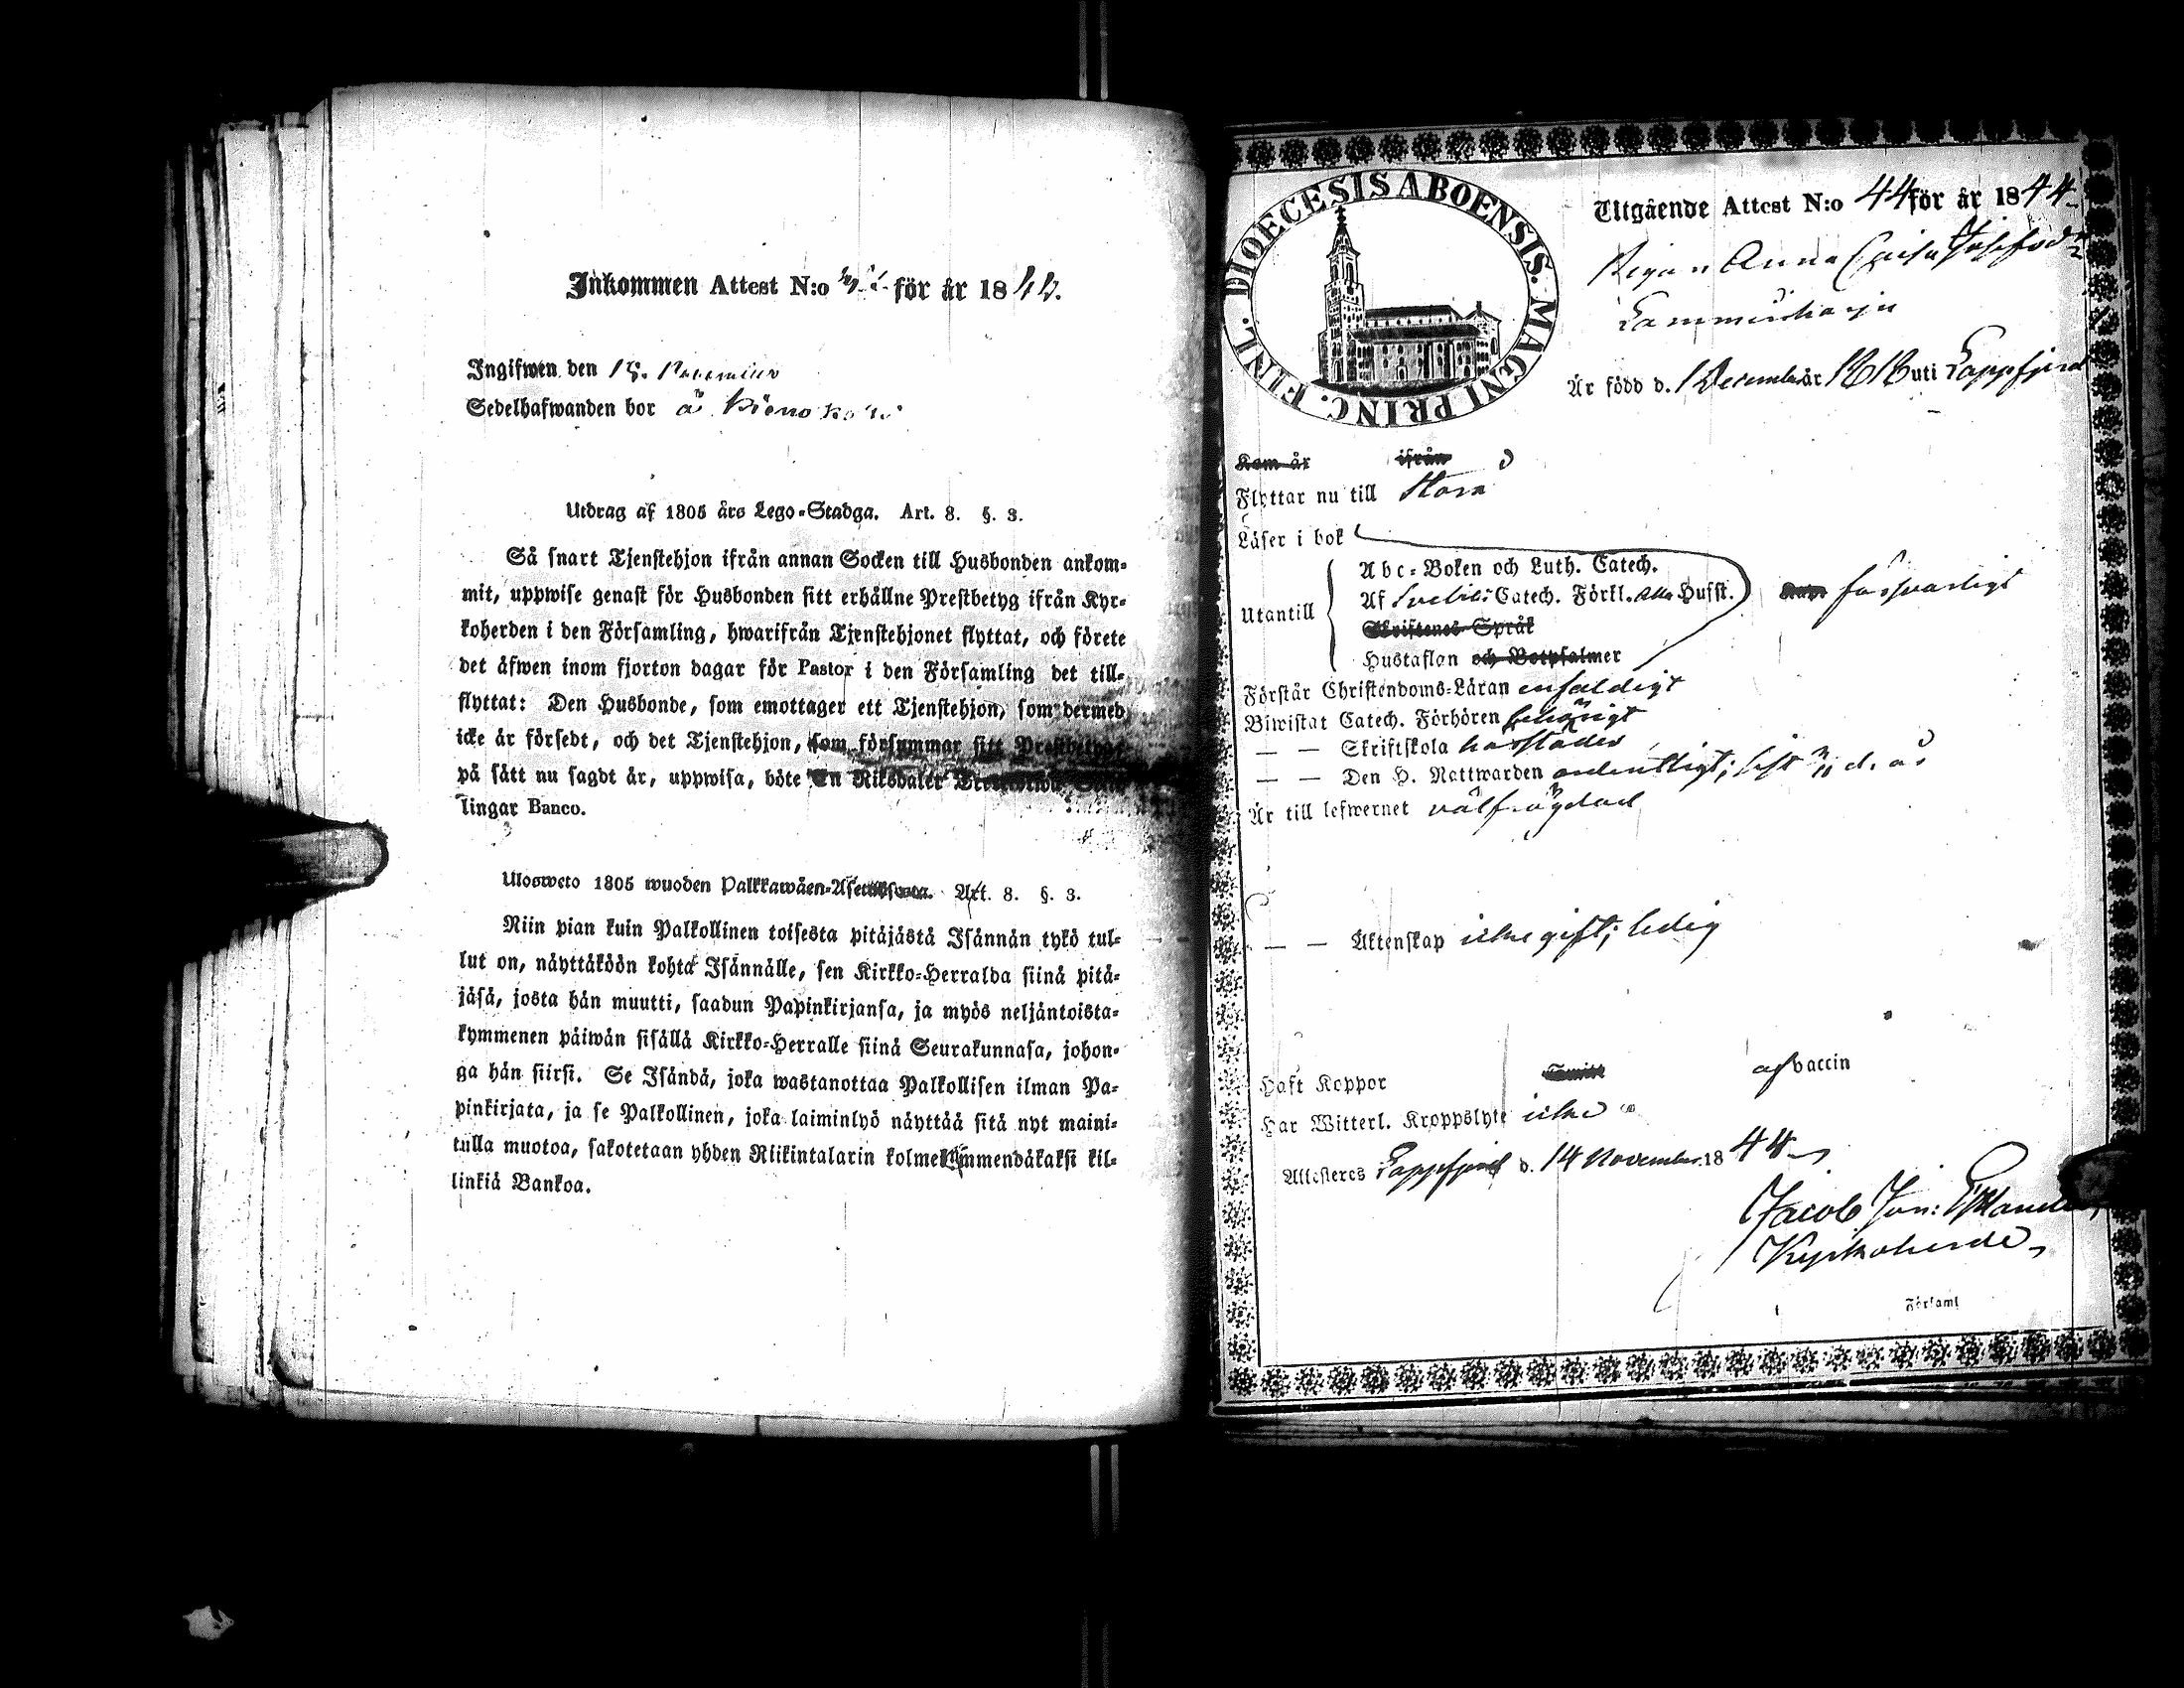 Inkommen Attest N:o för år 18
Ingifwen den 18. November
Sedelhafwanden bor å
Utdrag af 1805 års Lego-Stadga. Art. 8. §. 3.
Så snart Tjenstehjon ifrån annan Socken till Husbonden ankom-
mit, uppwise genast för Husbonden sitt erhållne Prestbetyg ifrån Kyr-
koherden i den Församling, hwarifrån Tjenstehjonet flyttat, och förete
det äfwen inom fjorton dagar för Pastor i den Församling det till-
flyttat: Den Husbonde, som emottager ett Tjenstehjon, som dermed
icke är försedt, och det Tjenstehjon, som försummar sitt Prestbetyg,
på sätt nu sagdt är, uppwisa, böte En Riksdaler
lingar Banco.
Ulosweto 1805 wuoden Palkkawäen-Asetuksesta. Art. 8. §. 3.
Niin pian kuin Palkollinen toisesta pitäjästä Isännän tykö tul-
lut on, näyttäköön kohta Isännälle, sen Kirkko-Herralda siinä pitä-
jäsä, josta hän muutti, saadun Papinkirjansa, ja myös neljäntoista-
kymmenen päiwän sisällä Kirkko-Herralle siinä Seurakunnasa, johon-
ga hän siirsi. Se Isändä, joka wastanottaa Palkollisen ilman Pa-
pinkirjata, ja se Palkollinen, joka laiminlyö näyttää sitä nyt maini-
tulla muotoa, sakotetaan yhden Riikintalarin kolmekymmendäkaksi kil-
linkiä Bankoa.
DIOECESIS ABOENSIS. MAGNI PRINC. FINL.
Utgående Attest N:o 44 för år 1844
Pigan Anna Josefsd:r
Är född d. 1 December år 1818 uti Lappfjerd
Kom år ifrån
Flyttar nu till Storå
Läser i bok
Abc-Boken och Luth. Catech.
Utantill Af Svebilii Catech. Förkl. Husst. försvarligt
Skriftenes Språk
Hustaflan och Botpsalmer
Förstår Christendoms-Läran enfaldigt
Biwistat Catech. Förhören behörigt
— — Skriftskola härstädes
— — Den H. Nattwarden ordentligt; sist d. å:
Är till lefwernet välfrägdad
— — Äktenskap icke gift; ledig
Haft Koppor af vaccin
Har Witterl. Kroppslyte icke
Attesteres Lappfjerd d. 14 November 1844
Jacob Jon:
Kyrkoherde
Församl